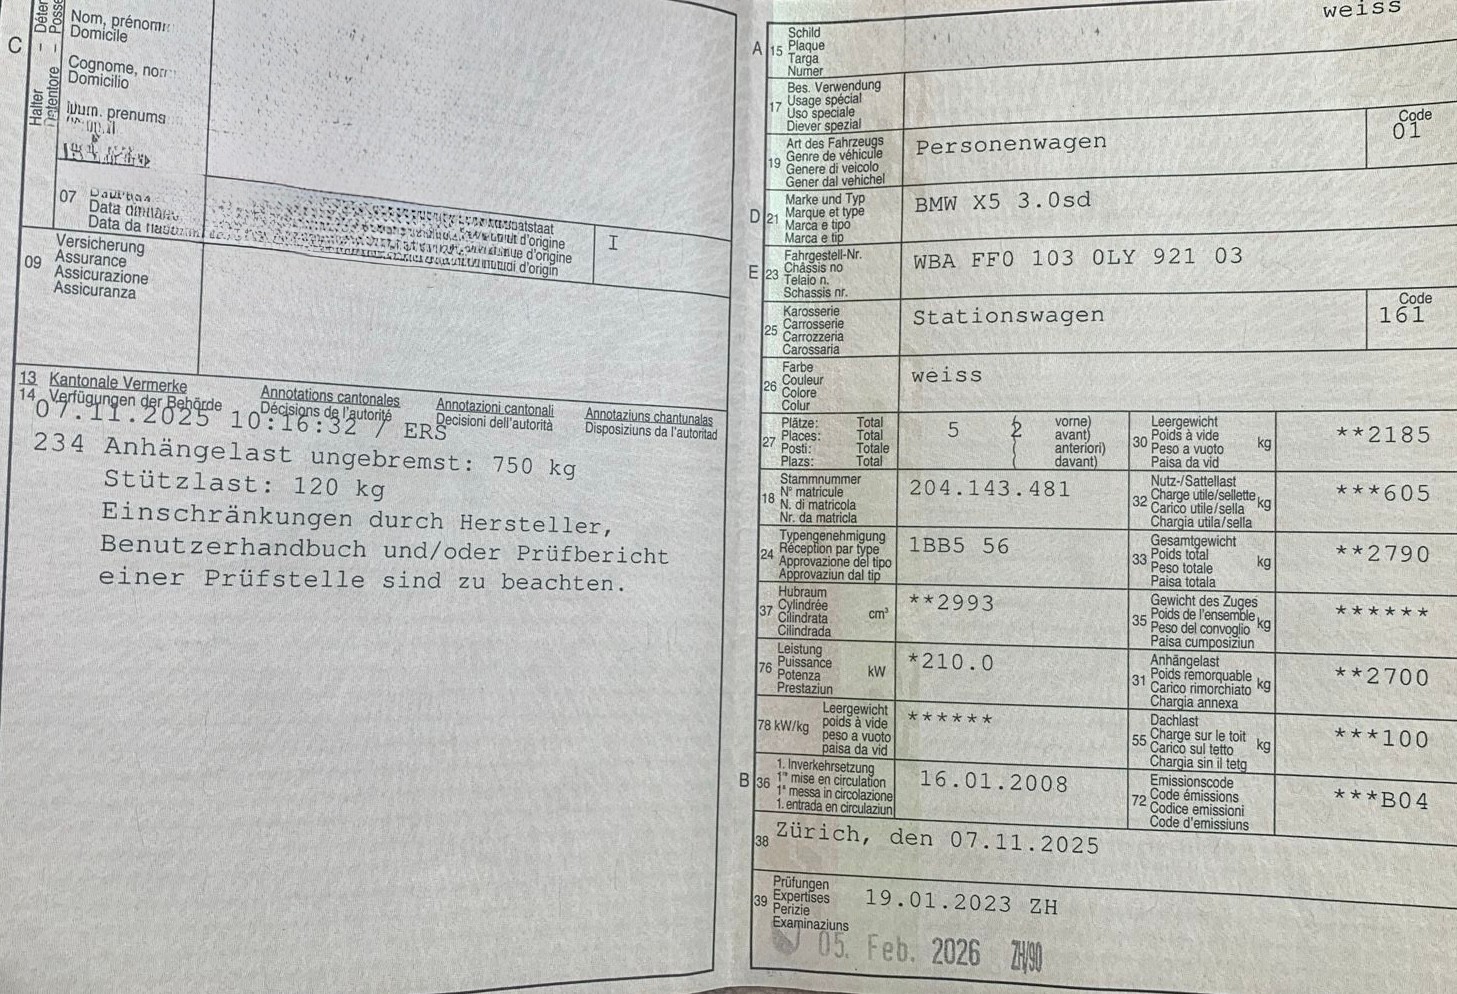 C
Halter
Nom, prénom
Domicile
Cognome, nom
Domicilio
Num. prenums
07
Data
Data da
d'origine
d'origine
d'origin
I
09
Versicherung
Assurance
Assicurazione
Assicuranza
13 Kantonale Vermerke Annotations cantonales Annotazioni cantonali Annotaziuns chantunalas
14 Verfügungen der Behörde Décisions de l'autorité Decisioni dell'autorità Disposiziuns da l'autoritad
07.11.2025 10:16:32 / ERS
234 Anhängelast ungebremst: 750 kg
Stützlast: 120 kg
Einschränkungen durch Hersteller,
Benutzerhandbuch und/oder Prüfbericht
einer Prüfstelle sind zu beachten.
weiss
A 15
Schild
Plaque
Targa
Numer
17
Bes. Verwendung
Usage spécial
Uso speciale
Diever spezial
19
Art des Fahrzeugs
Genre de véhicule
Genere di veicolo
Gener dal vehichel
Personenwagen
Code
01
D 21
Marke und Typ
Marque et type
Marca e tipo
Marca e tip
BMW X5 3.0sd
E 23
Fahrgestell-Nr.
Châssis no
Telaio n.
Schassis nr.
WBA FF0 103 0LY 921 03
25
Karosserie
Carrosserie
Carrozzeria
Carossaria
Stationswagen
Code
161
26
Farbe
Couleur
Colore
Colur
weiss
27
Plätze: Total
Places: Total
Posti: Totale
Plazs: Total
5 2
vorne)
avant)
anteriori)
davant)
30
Leergewicht
Poids à vide
Peso a vuoto
Paisa da vid
kg
**2185
18
Stammnummer
N° matricule
N. di matricola
Nr. da matricla
204.143.481
32
Nutz-/Sattellast
Charge utile/sellette
Carico utile/sella
Chargia utila/sella
kg
***605
24
Typengenehmigung
Réception par type
Approvazione del tipo
Approvaziun dal tip
1BB5 56
33
Gesamtgewicht
Poids total
Peso totale
Paisa totala
kg
**2790
37
Hubraum
Cylindrée
Cilindrata
Cilindrada
cm³
**2993
35
Gewicht des Zuges
Poids de l'ensemble
Peso del convoglio
Paisa cumposiziun
kg
******
76
Leistung
Puissance
Potenza
Prestaziun
kW
*210.0
31
Anhängelast
Poids remorquable
Carico rimorchiato
Chargia annexa
kg
**2700
78 kW/kg
Leergewicht
poids à vide
peso a vuoto
paisa da vid
******
55
Dachlast
Charge sur le toit
Carico sul tetto
Chargia sin il tetg
kg
***100
B 36
1. Inverkehrsetzung
1re mise en circulation
1a messa in circolazione
1. entrada en circulaziun
16.01.2008
72
Emissionscode
Code émissions
Codice emissioni
Code d'emissiuns
***B04
38
Zürich, den 07.11.2025
39
Prüfungen
Expertises
Perizie
Examinaziuns
19.01.2023 ZH
05. Feb. 2026 ZH/90